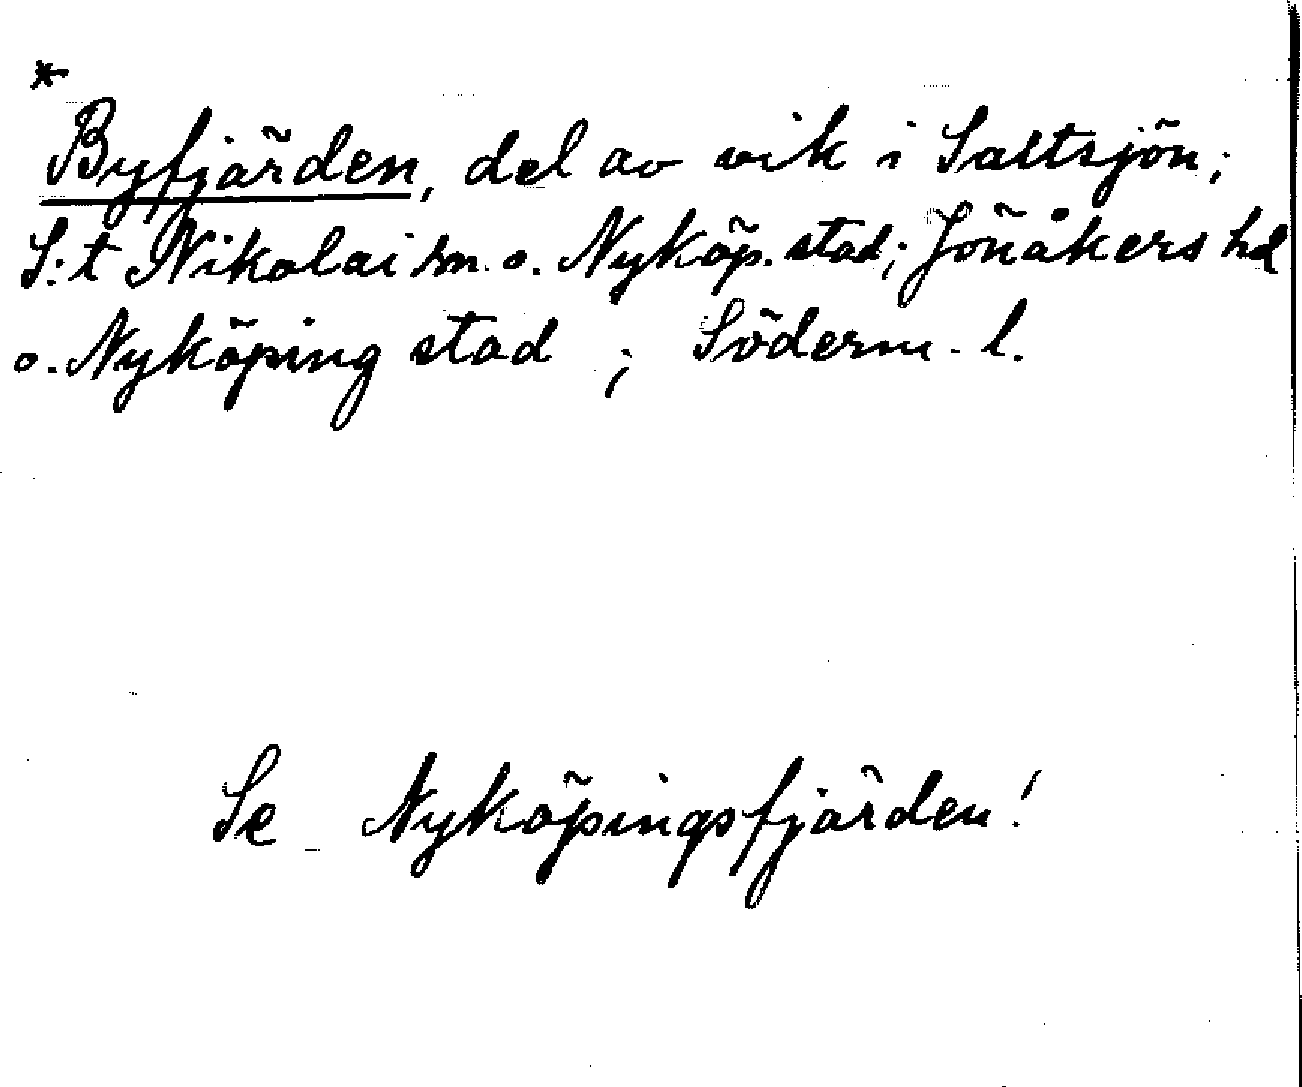 *
Byfjärden, del av vik i Saltsjön;
S:t Nikolai sn. o. Nyköp. stad; Jönåkers hd
o. Nyköping stad ; Söderm. l.
Se Nyköpingsfjärden!